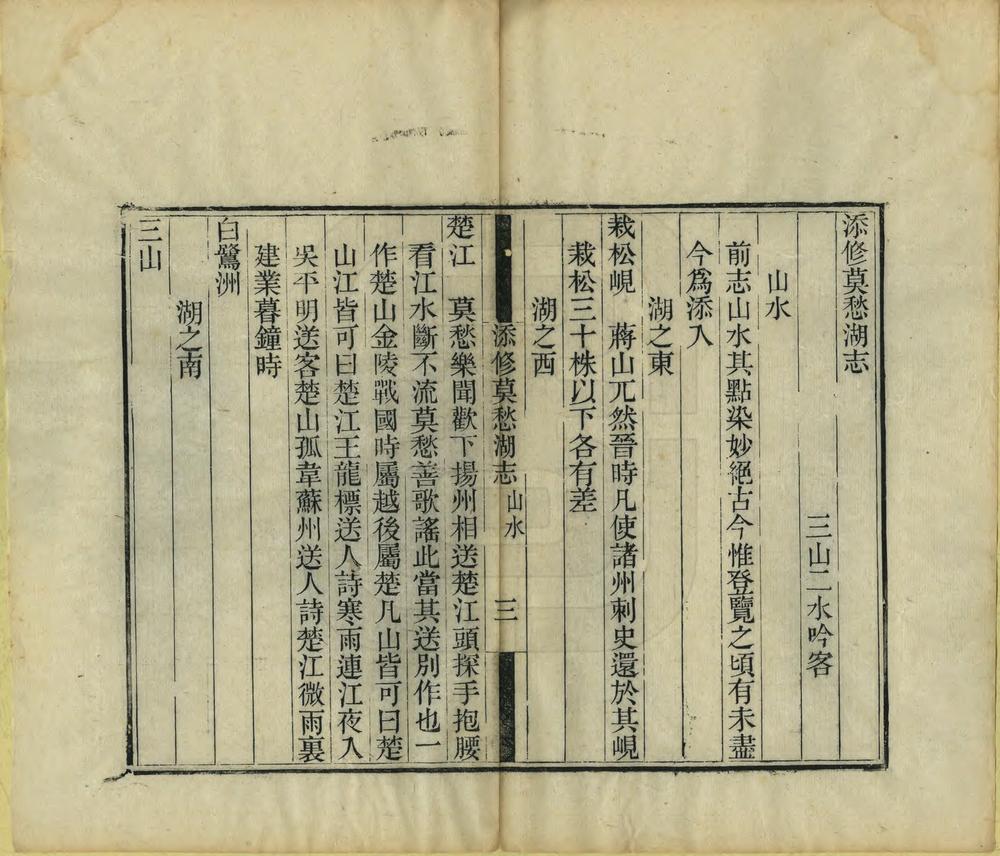 添修莫愁湖志
三山二水吟客
山水
前志山水其點染妙絕古今惟登覽之頃有未盡
今爲添入
湖之東
栽松峴　蔣山兀然晉時凡使諸州刺史還於其峴
栽松三十株以下各有差
湖之西
添修莫愁湖志　山水　三
楚江　莫愁樂聞歡下揚州相送楚江頭探手抱腰
看江水斷不流莫愁善歌謠此當其送別作也一
作楚山金陵戰國時屬越後屬楚凡山皆可曰楚
山江皆可曰楚江王龍標送人詩寒雨連江夜入
吳平明送客楚山孤韋蘇州送人詩楚江微雨裏
建業暮鐘時
白鷺洲
湖之南
三山